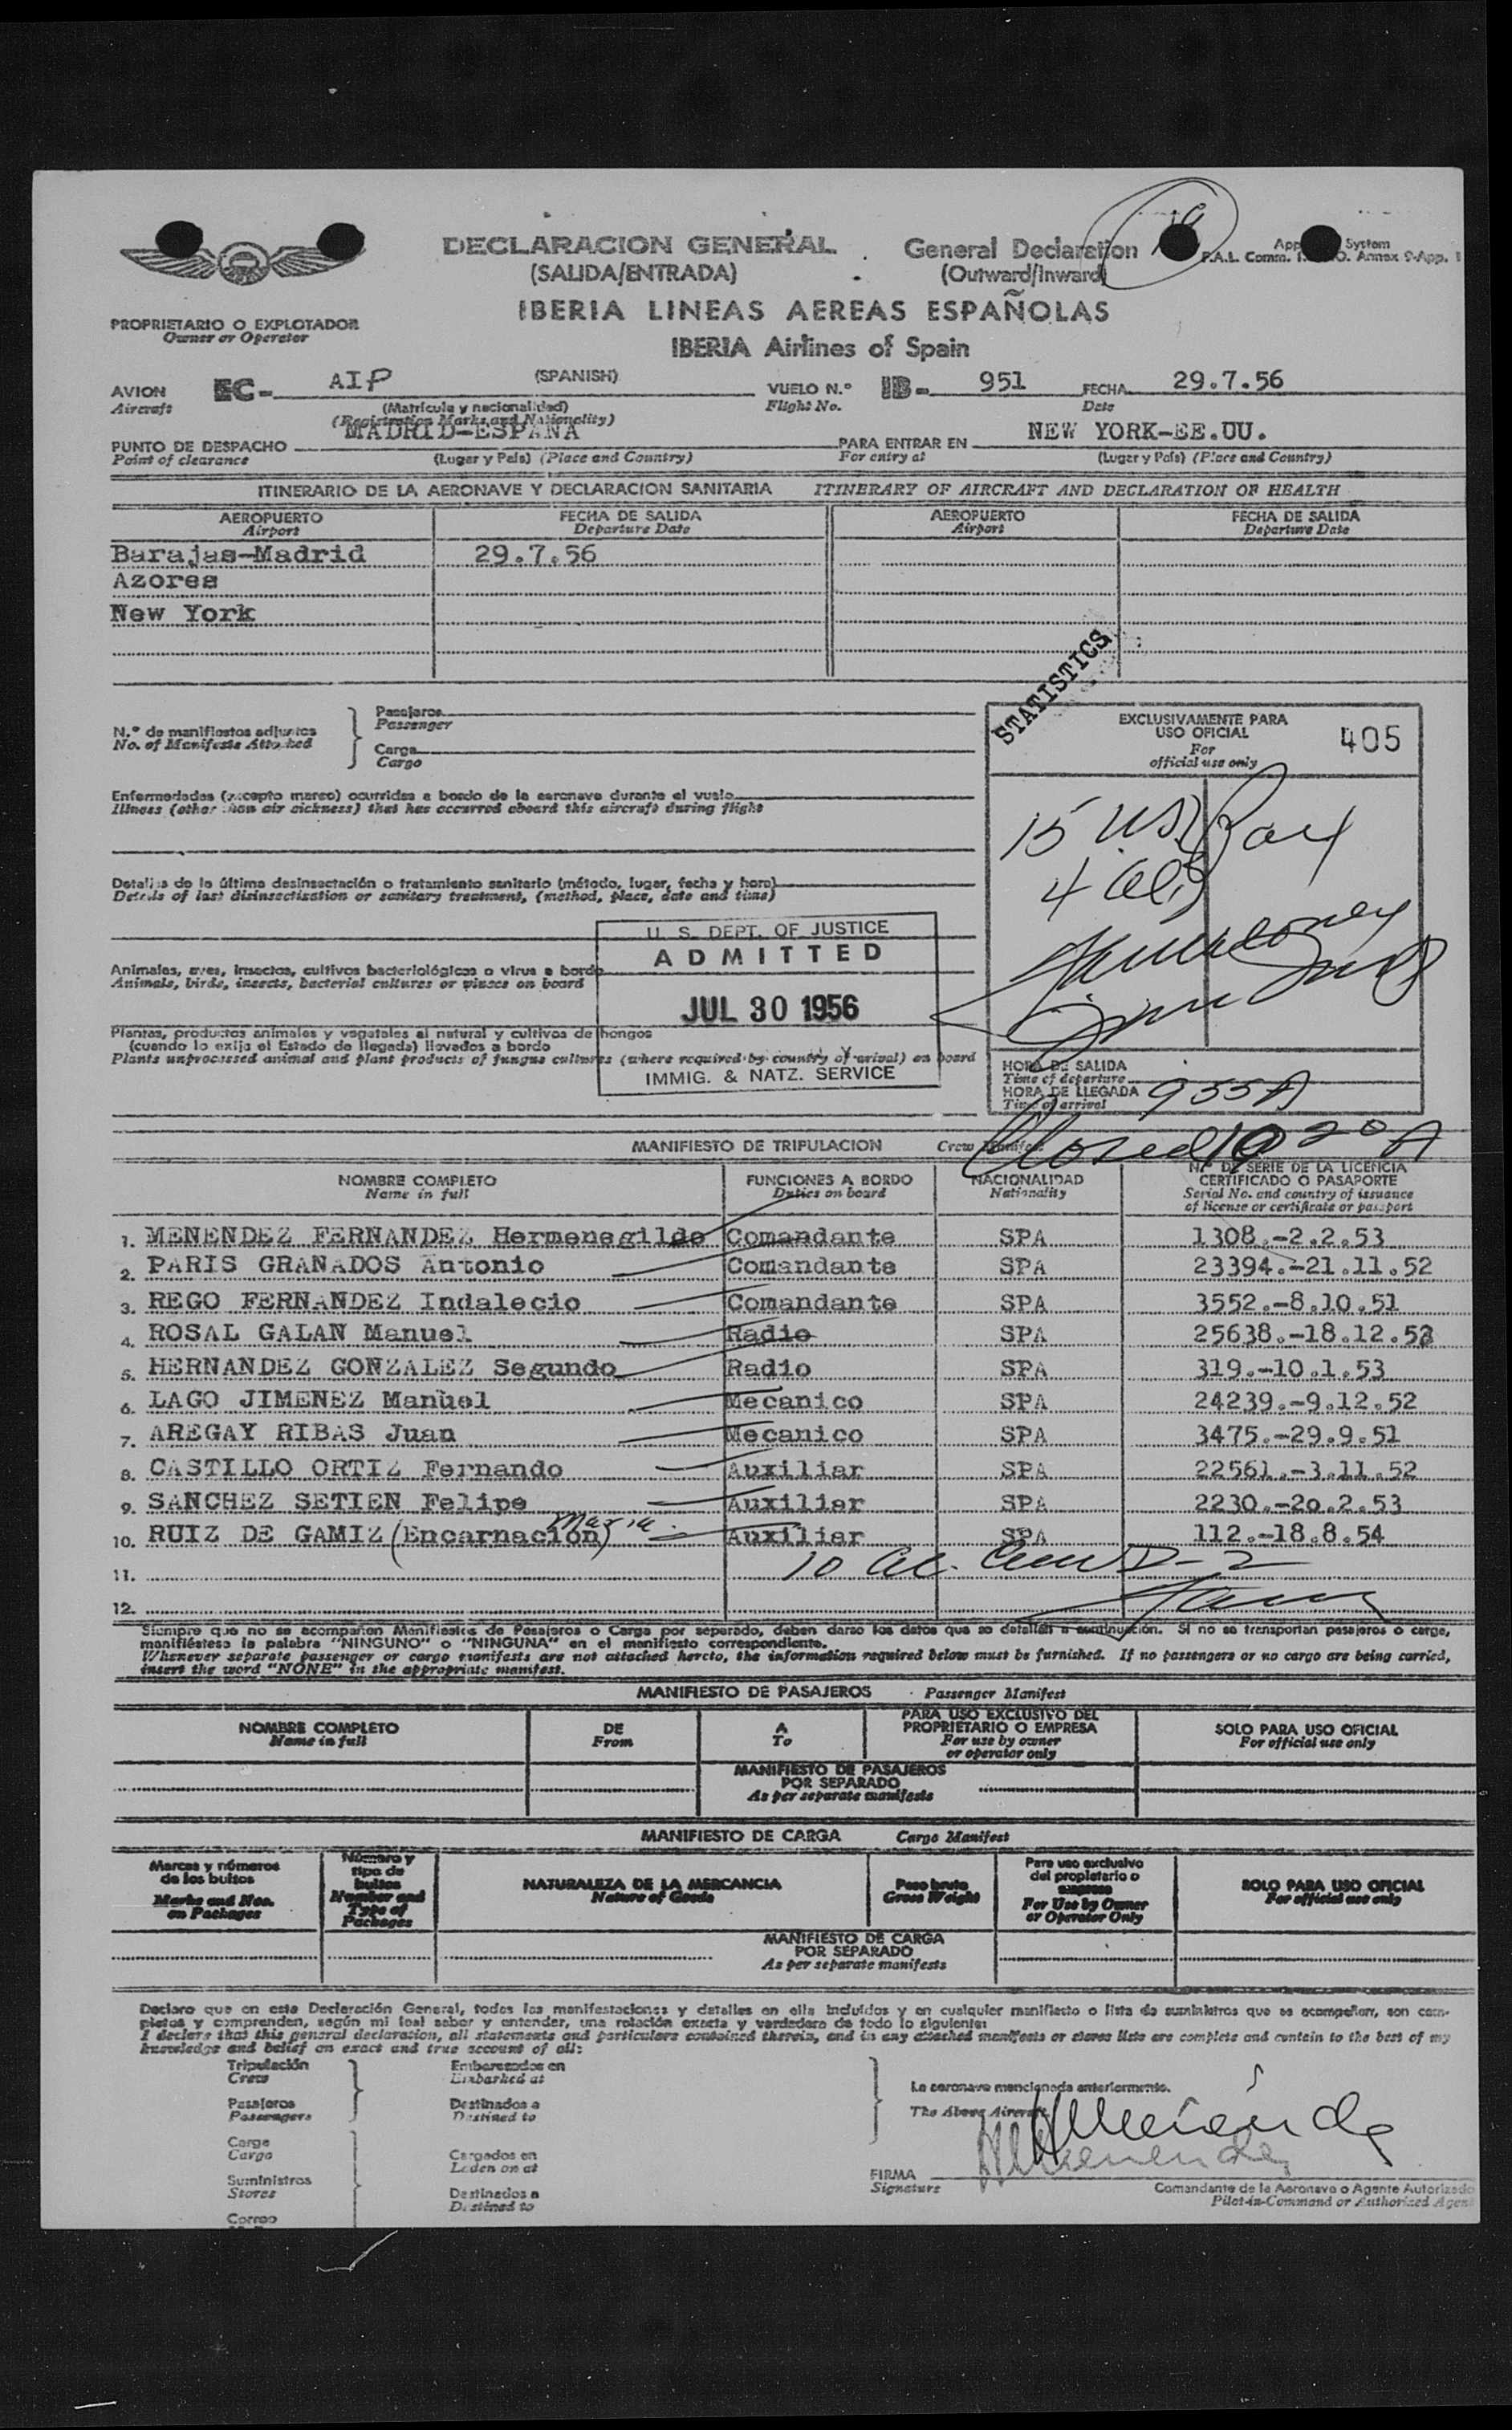 DECLARACION GENERAL General Declaration
(SALIDA/ENTRADA) (Outward/Inward)
App System
F.A.L. Comm. Annex 9-App. 1
IBERIA LINEAS AEREAS ESPAÑOLAS
IBERIA Airlines of Spain
PROPRIETARIO O EXPLOTADOR
Owner or Operator
AVION EC- AIP (SPANISH) VUELO N.º IB- 951 FECHA 29.7.56
Aircraft (Matrícula y nacionalidad) Flight No. Date
(Registration Marks and Nationality)
PUNTO DE DESPACHO MADRID-ESPAÑA PARA ENTRAR EN NEW YORK-EE.UU.
Point of clearance (Lugar y País) (Place and Country) For entry at (Lugar y País) (Place and Country)
ITINERARIO DE LA AERONAVE Y DECLARACION SANITARIA ITINERARY OF AIRCRAFT AND DECLARATION OF HEALTH
AEROPUERTO FECHA DE SALIDA AEROPUERTO FECHA DE SALIDA
Airport Departure Date Airport Departure Date
Barajas-Madrid 29.7.56
Azores
New York
STATISTICS
N.º de manifiestos adjuntos
No. of Manifests Attached
Pasajeros
Passenger
Carga
Cargo
EXCLUSIVAMENTE PARA
USO OFICIAL
For
official use only
405
15 US
4 Al
Enfermedades (excepto mareo) ocurridas a bordo de la aeronave durante el vuelo
Illness (other than air sickness) that has occurred aboard this aircraft during flight
Detalles de la última desinsectación o tratamiento sanitario (método, lugar, fecha y hora)
Details of last disinsectization or sanitary treatment, (method, place, date and time)
U. S. DEPT. OF JUSTICE
ADMITTED
JUL 30 1956
IMMIG. & NATZ. SERVICE
Animales, aves, insectos, cultivos bacteriológicos o virus a bordo
Animals, birds, insects, bacterial cultures or viruses on board
Plantas, productos animales y vegetales al natural y cultivos de hongos
(cuando lo exija el Estado de llegada) llevados a bordo
Plants unprocessed animal and plant products of fungus cultures (where required by country of arival) on board
HORA DE SALIDA
Time of departure
HORA DE LLEGADA 955A
Time of arrival
Closed 10 20 A
MANIFIESTO DE TRIPULACION Crew Manifest
NOMBRE COMPLETO FUNCIONES A BORDO NACIONALIDAD N.º DE SERIE DE LA LICENCIA
Name in full Duties on board Nationality CERTIFICADO O PASAPORTE
Serial No. and country of issuance
of license or certificate or passport
1. MENENDEZ FERNANDEZ Hermenegildo Comandante SPA 1308.-2.2.53
2. PARIS GRANADOS Antonio Comandante SPA 23394.-21.11.52
3. REGO FERNANDEZ Indalecio Comandante SPA 3552.-8.10.51
4. ROSAL GALAN Manuel Radio SPA 25638.-18.12.52
5. HERNANDEZ GONZALEZ Segundo Radio SPA 319.-10.1.53
6. LAGO JIMENEZ Manuel Mecanico SPA 24239.-9.12.52
7. AREGAY RIBAS Juan Mecanico SPA 3475.-29.9.51
8. CASTILLO ORTIZ Fernando Auxiliar SPA 22561.-3.11.52
9. SANCHEZ SETIEN Felipe Auxiliar SPA 2230.-20.2.53
10. RUIZ DE GAMIZ (Encarnación) Maria Auxiliar SPA 112.-18.8.54
11. 10 Al. Crew D-2
12.
Siempre que no se acompañen Manifiestos de Pasajeros o Carga por separado, deben darse los datos que se detallan a continuación. Si no se transportan pasajeros o carga,
manifiéstese la palabra "NINGUNO" o "NINGUNA" en el manifiesto correspondiente.
Whenever separate passenger or cargo manifests are not attached hereto, the information required below must be furnished. If no passengers or no cargo are being carried,
insert the word "NONE" in the appropriate manifest.
MANIFIESTO DE PASAJEROS Passenger Manifest
NOMBRE COMPLETO DE A PARA USO EXCLUSIVO DEL SOLO PARA USO OFICIAL
Name in full From To PROPRIETARIO O EMPRESA For official use only
For use by owner
or operator only
MANIFIESTO DE PASAJEROS
POR SEPARADO
As per separate manifests
MANIFIESTO DE CARGA Cargo Manifest
Marcas y números
de los bultos
Marks and Nos.
on Packages
Número y
tipo de
bultos
Number and
Type of
Packages
NATURALEZA DE LA MERCANCIA
Nature of Goods
Peso bruto
Gross Weight
Para uso exclusivo
del propietario o
empresa
For Use by Owner
or Operator Only
SOLO PARA USO OFICIAL
For official use only
MANIFIESTO DE CARGA
POR SEPARADO
As per separate manifests
Declaro que en esta Declaración General, todas las manifestaciones y detalles en ella incluídos y en cualquier manifiesto o lista de suministros que se acompañen, son com-
pletas y comprenden, según mi leal saber y entender, una relación exacta y verdadera de todo lo siguiente:
I declare that this general declaration, all statements and particulars contained therein, and in any attached manifests or stores lists are complete and contain to the best of my
knowledge and belief an exact and true account of all:
Tripulación
Crew
Pasajeros
Passengers
Carga
Cargo
Suministros
Stores
Correo
Embarcados en
Embarked at
Destinados a
Destined to
Cargados en
Laden on at
Destinados a
Destined to
La aeronave mencionada anteriormente.
The Above Aircraft
HMenéndez
HMenendez
FIRMA
Signature
Comandante de la Aeronave o Agente Autorizado
Pilot-in-Command or Authorized Agent